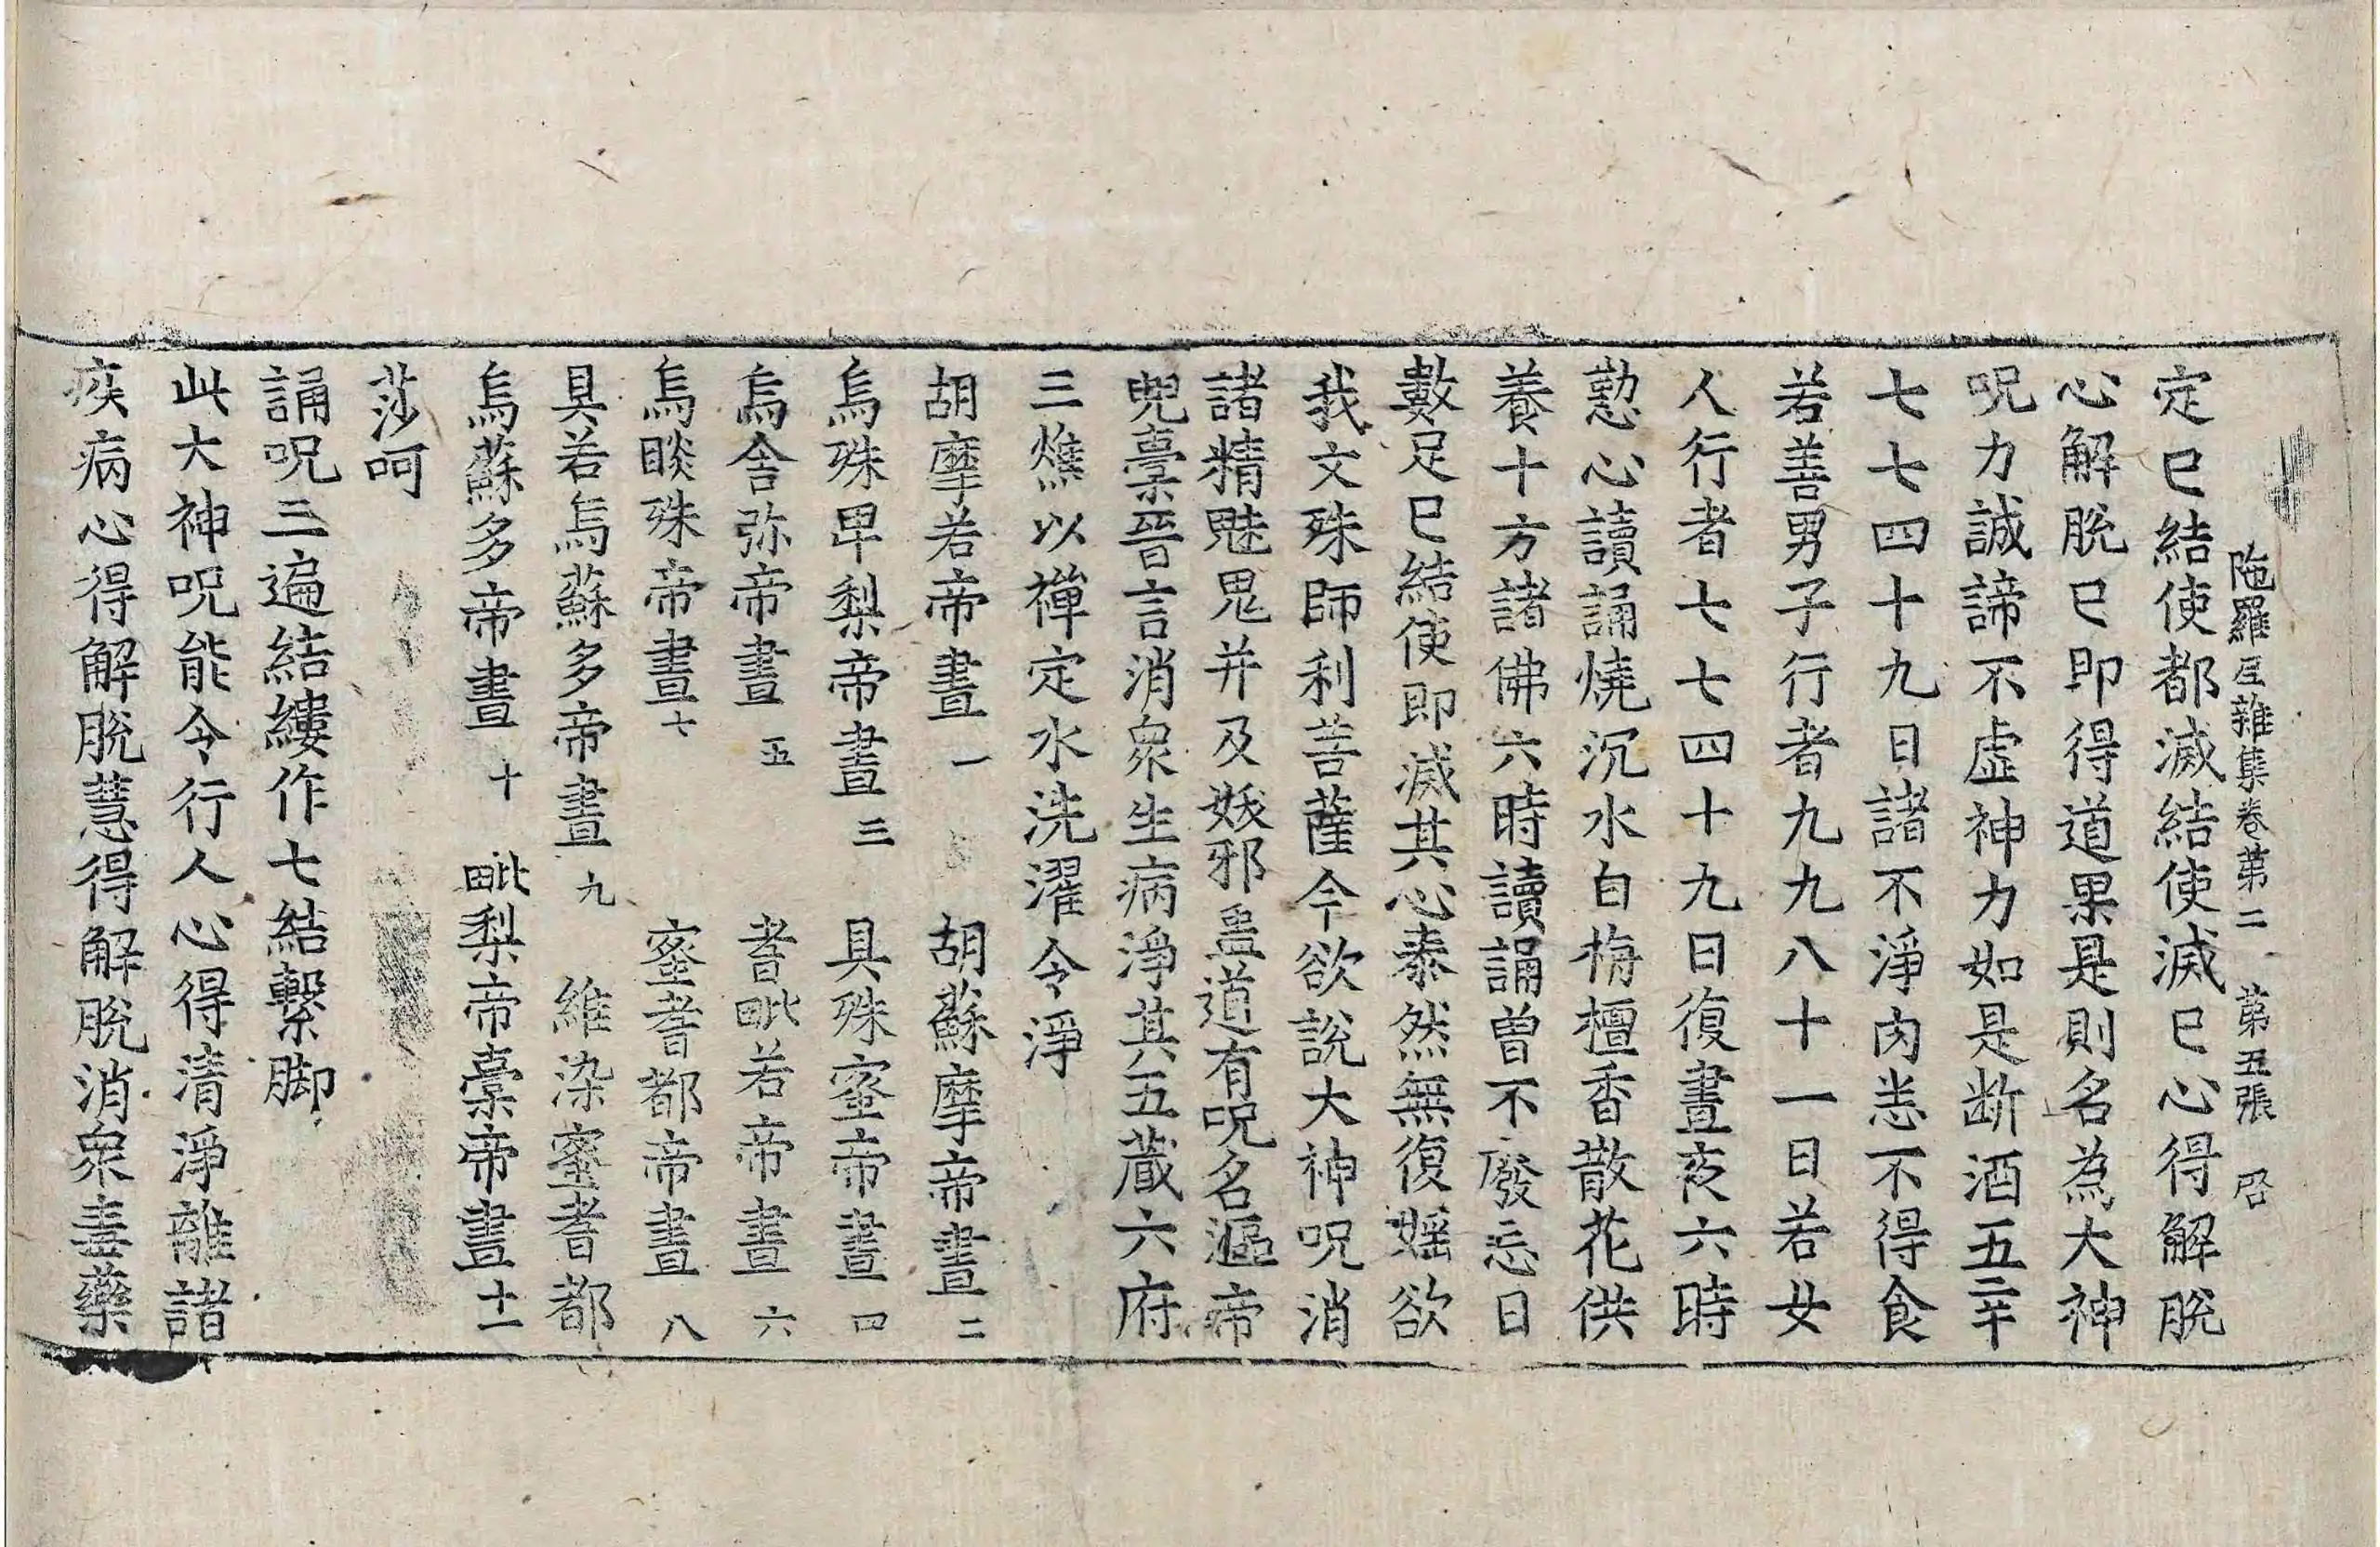 陁羅尼雜集卷第二　第五張　啓
定已結使都滅結使滅已心得解脫
心解脫已即得道果是則名為大神
呪力誠諦不虛神力如是断酒五辛
七七四十九日諸不淨肉恙不得食
若善男子行者九九八十一日若女
人行者七七四十九日復晝夜六時
懃心讀誦燒沉水白栴檀香散花供
養十方諸佛六時讀誦曾不廢忘日
數足已結使即滅其心泰然無復婬欲
我文殊師利菩薩今欲說大神呪消
諸精魅鬼并及妖邪蛊道有呪名漚帝
兜㯱晉言消衆生病淨其五藏六府
三燋以禪定水洗濯令淨
胡摩若帝晝一　胡蘇摩帝晝二
烏殊卑梨帝晝三　具殊蜜帝晝四
烏舍弥帝晝五　耆毗若帝晝六
烏睒殊帝晝七　蜜耆都帝晝八
具若烏蘇多帝晝九　維染蜜耆都
烏蘇多帝晝十　毗梨帝㯱帝晝十一
莎呵
誦呪三遍結縷作七結繫脚
此大神呪能令行人心得清淨離諸
疾病心得解脫慧得解脫消衆毒藥